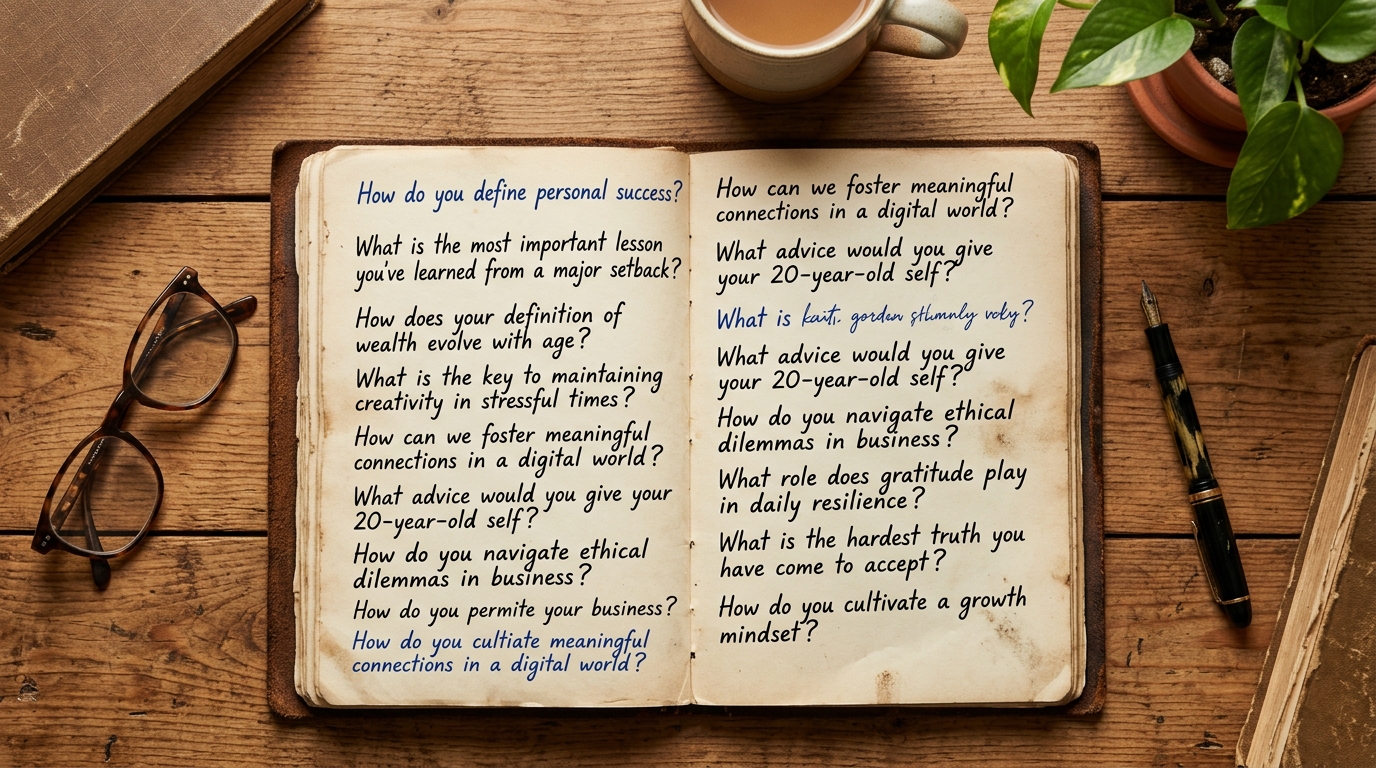 How do you define personal success?
What is the most important lesson
you've learned from a major setback?
How does your definition of
wealth evolve with age?
What is the key to maintaining
creativity in stressful times?
How can we foster meaningful
connections in a digital world?
What advice would you give your
20-year-old self?
How do you navigate ethical
dilemmas in business?
How do you permite your business?
How do you cultiate meaningful
connections in a digital world?
How can we foster meaningful
connections in a digital world?
What advice would you give
your 20-year-old self?
What is
What advice would you give
your 20-year-old self?
How do you navigate ethical
dilemmas in business?
What role does gratitude play
in daily resilience?
What is the hardest truth you
have come to accept?
How do you cultivate a growth
mindset?